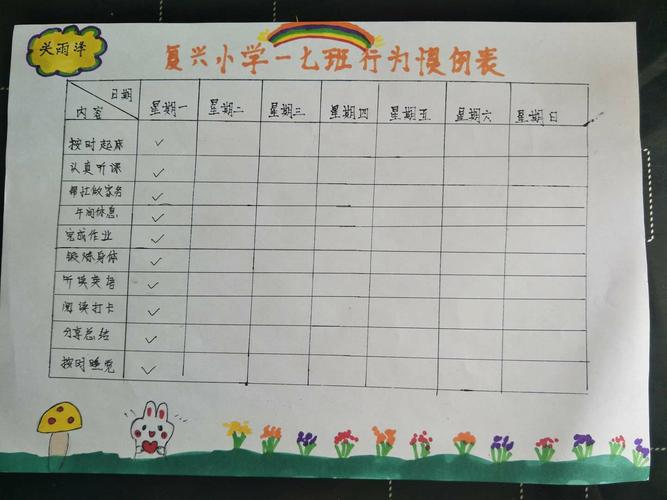 关雨泽
复兴小学一七班行为惯例表
日期
内容
星期一 星期二 星期三 星期四 星期五 星期六 星期日
按时起床 ✓
认真听课 ✓
帮忙做家务 ✓
午间休息 ✓
完成作业 ✓
锻炼身体 ✓
听读英语 ✓
阅读打卡 ✓
分享总结 ✓
按时睡觉 ✓